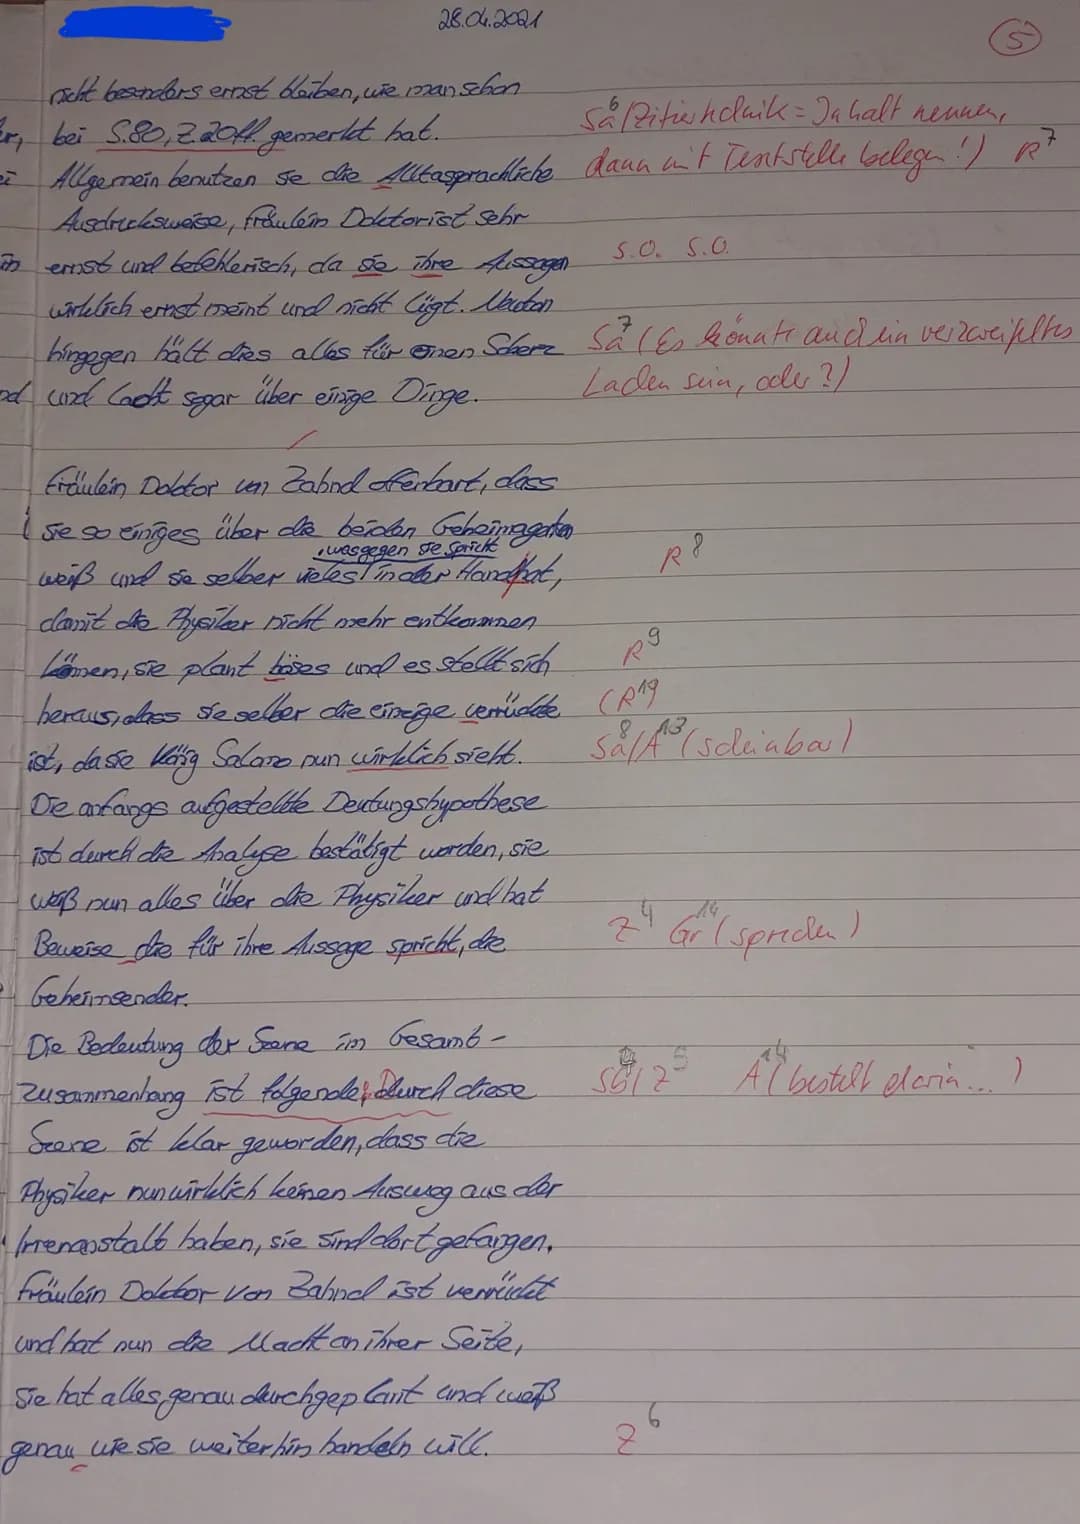 28.04.2021
5
nicht besonders ernst bleiben, wie man schon
bei S.80, Z.20ff. gemerkt hat.
Sa⁶ (Zitiertechnik = Inhalt nennen,
dann mit Textstelle belegen!) R⁷
Allgemein benutzen sie die Alltasprachliche
Ausdrucksweise, Fräulein Doktor ist sehr
ernst und befehlerisch, da sie ihre Aussagen
s.o. s.o.
wirklich ernst meint und nicht lügt. Newton
hingegen hält dies alles für einen Scherz
und lacht sogar über einige Dinge.
Sa⁷ (Es könnte auch ein verzweifeltes
Lachen sein, oder?)
Fräulein Doktor von Zahnd offenbart, dass
sie so einiges über die beiden Geheimagenten
, was gegen sie spricht
weiß und sie selber vieles in der Hand hat,
R⁸
damit die Physiker nicht mehr entkommen
können, sie plant böses und es stellt sich
R⁹
heraus, dass sie selber die einzige verrückte
(R¹⁹
ist, da sie König Salomo nun wirklich sieht.
Sa⁸/A¹³ (scheinbar)
Die anfangs aufgestellte Deutungshypothese
ist durch die Analyse bestätigt worden, sie
weiß nun alles über die Physiker und hat
Beweise die für ihre Aussage spricht, die
Z⁴ Gr¹⁴ (sprechen)
Geheimsender.
Die Bedeutung der Szene im Gesamt-
zusammenhang ist folgende: Durch diese
Sb/Z⁵ A¹⁴ (besteht darin...)
Szene ist klar geworden, dass die
Physiker nun wirklich keinen Ausweg aus der
Irrenanstalt haben, sie sind dort gefangen.
Fräulein Doktor von Zahnd ist verrückt
und hat nun die Macht an ihrer Seite,
sie hat alles genau durchgeplant und weiß
genau wie sie weiterhin handeln will.
Z⁶